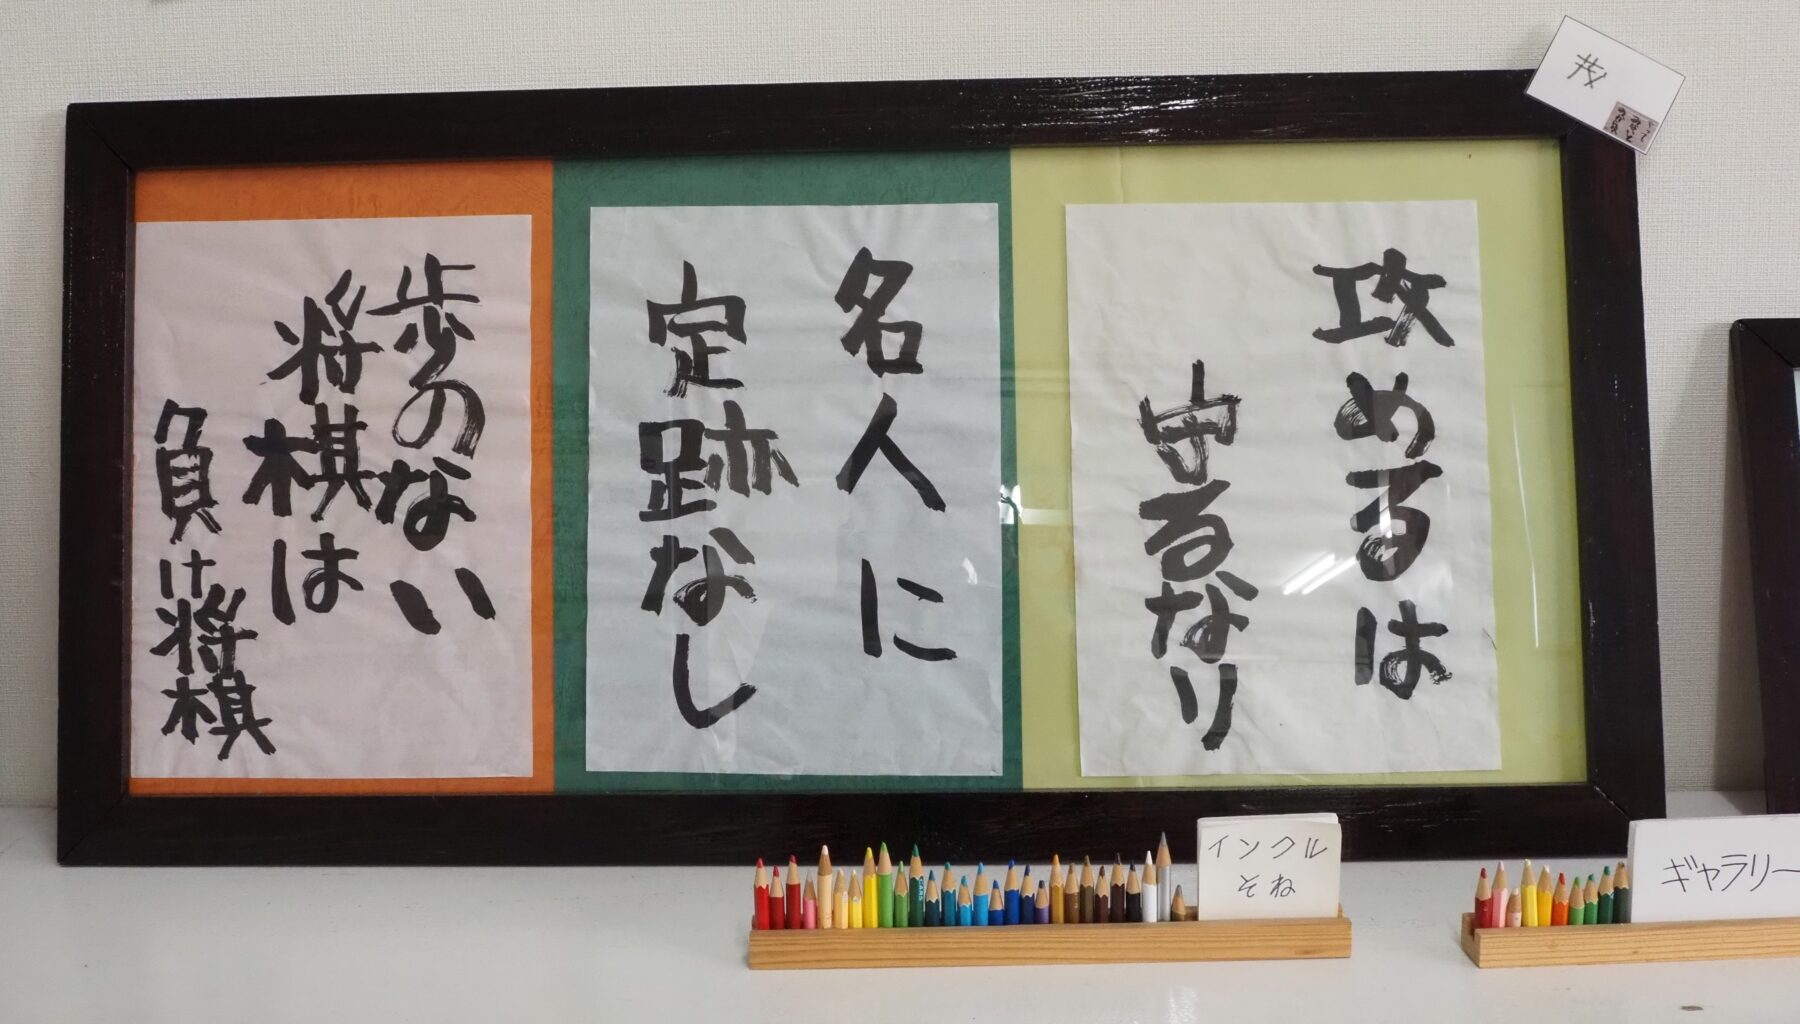 攻めるは
守るなり
名人に
定跡なし
歩のない
将棋は
負け将棋
インクル
そね
ギャラリー
CARS